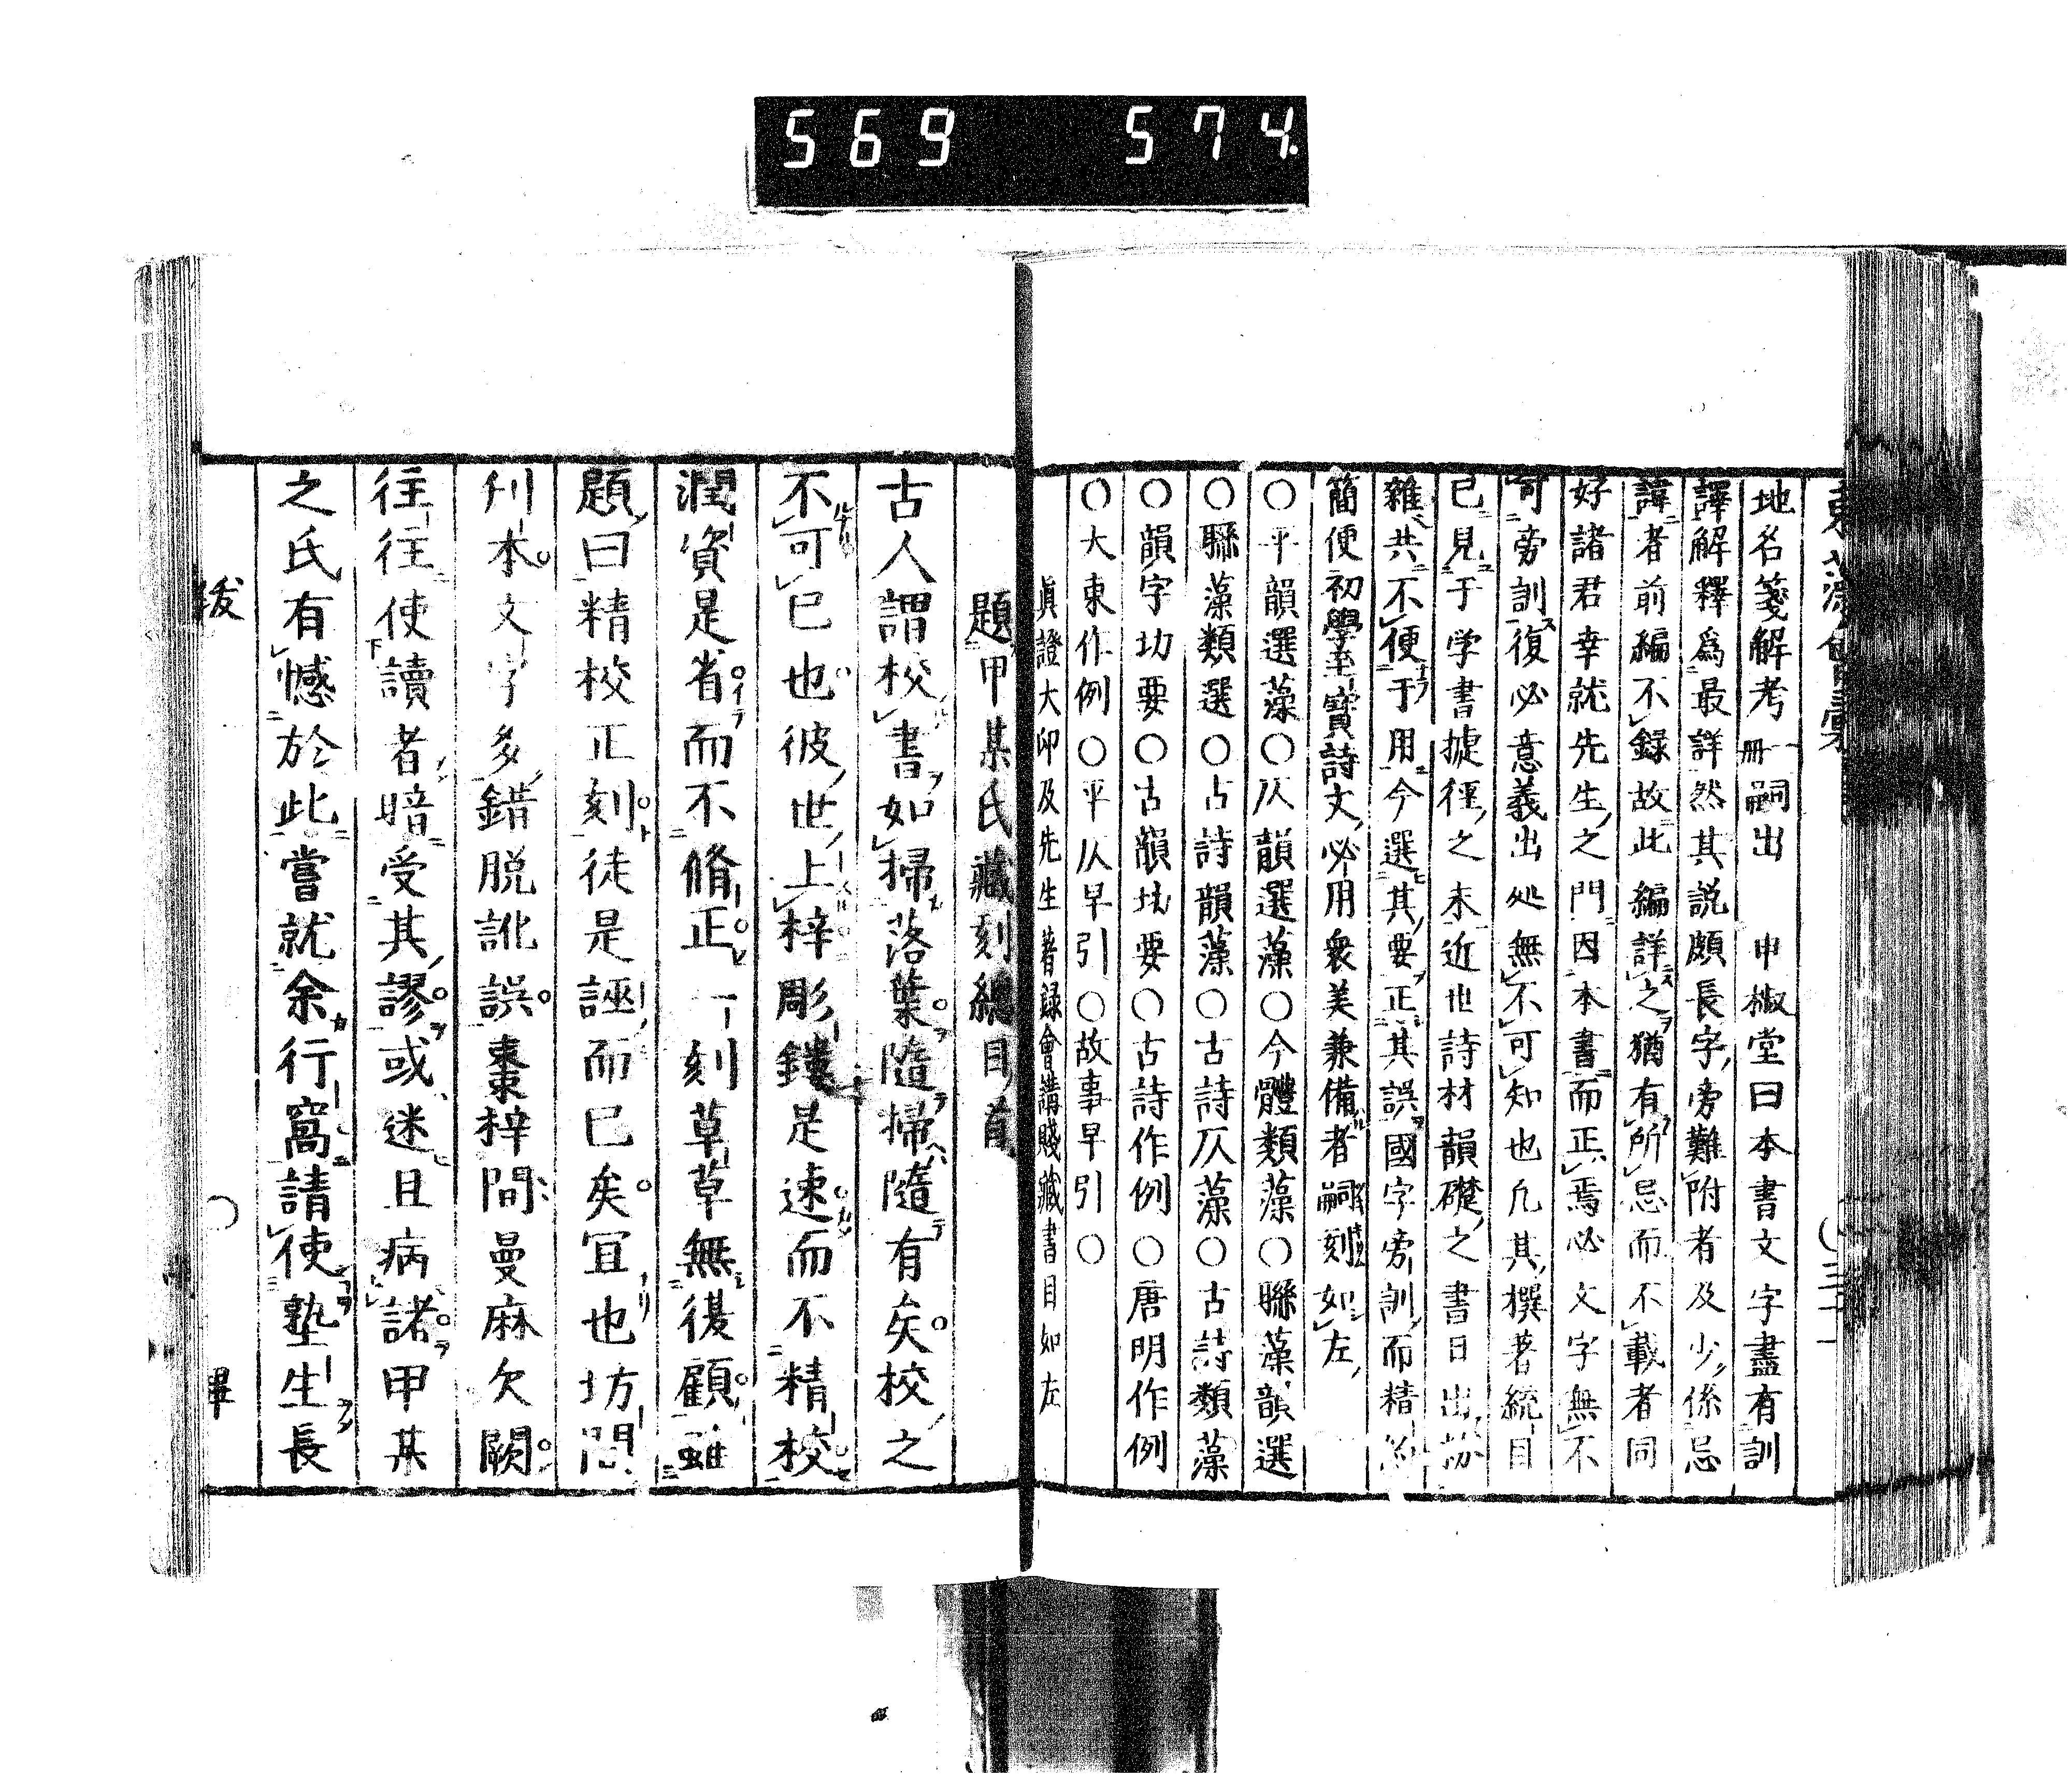 569 574
地名箋解考冊嗣出 申椒堂曰本書文字盡有訓
譯解釋爲最詳然其説頗長字旁難附者及少係忌
諱者前編不録故此編詳之猶有所忌而不載者同
好諸君幸就先生之門因本書而正焉必文字無不
可旁訓復必意義出処無不可知也凡其撰著統目
已見于学書捷徑之末近世詩材韻礎之書日出
雜共不便于用今選其要正其誤國字旁訓而精
簡便初學至寶詩文必用衆美兼備者嗣刻如左
〇平韻選藻〇仄韻選藻〇今體類藻〇聯藻韻選
〇聯藻類選〇占詩韻藻〇古詩仄藻〇古詩類藻
〇韻字功要〇古韻功要〇古詩作例〇唐明作例
〇大東作例〇平仄早引〇故事早引〇
眞證大印及先生著録會講賤藏書目如左
題甲某氏藏刻總目首
古人謂校書如掃落葉隨掃隨有矣校之
不可已也彼世上梓彫鏤是速而不精校
潤資是省而不脩正一刻草草無復顧雖
題曰精校正刻徒是誣而已矣冝也坊間
刋本文字多錯脱訛誤棗梓間曼麻欠闕
往往使讀者暗受其謬或迷且病諸甲某
之氏有憾於此嘗就余行窩請使塾生長
跋